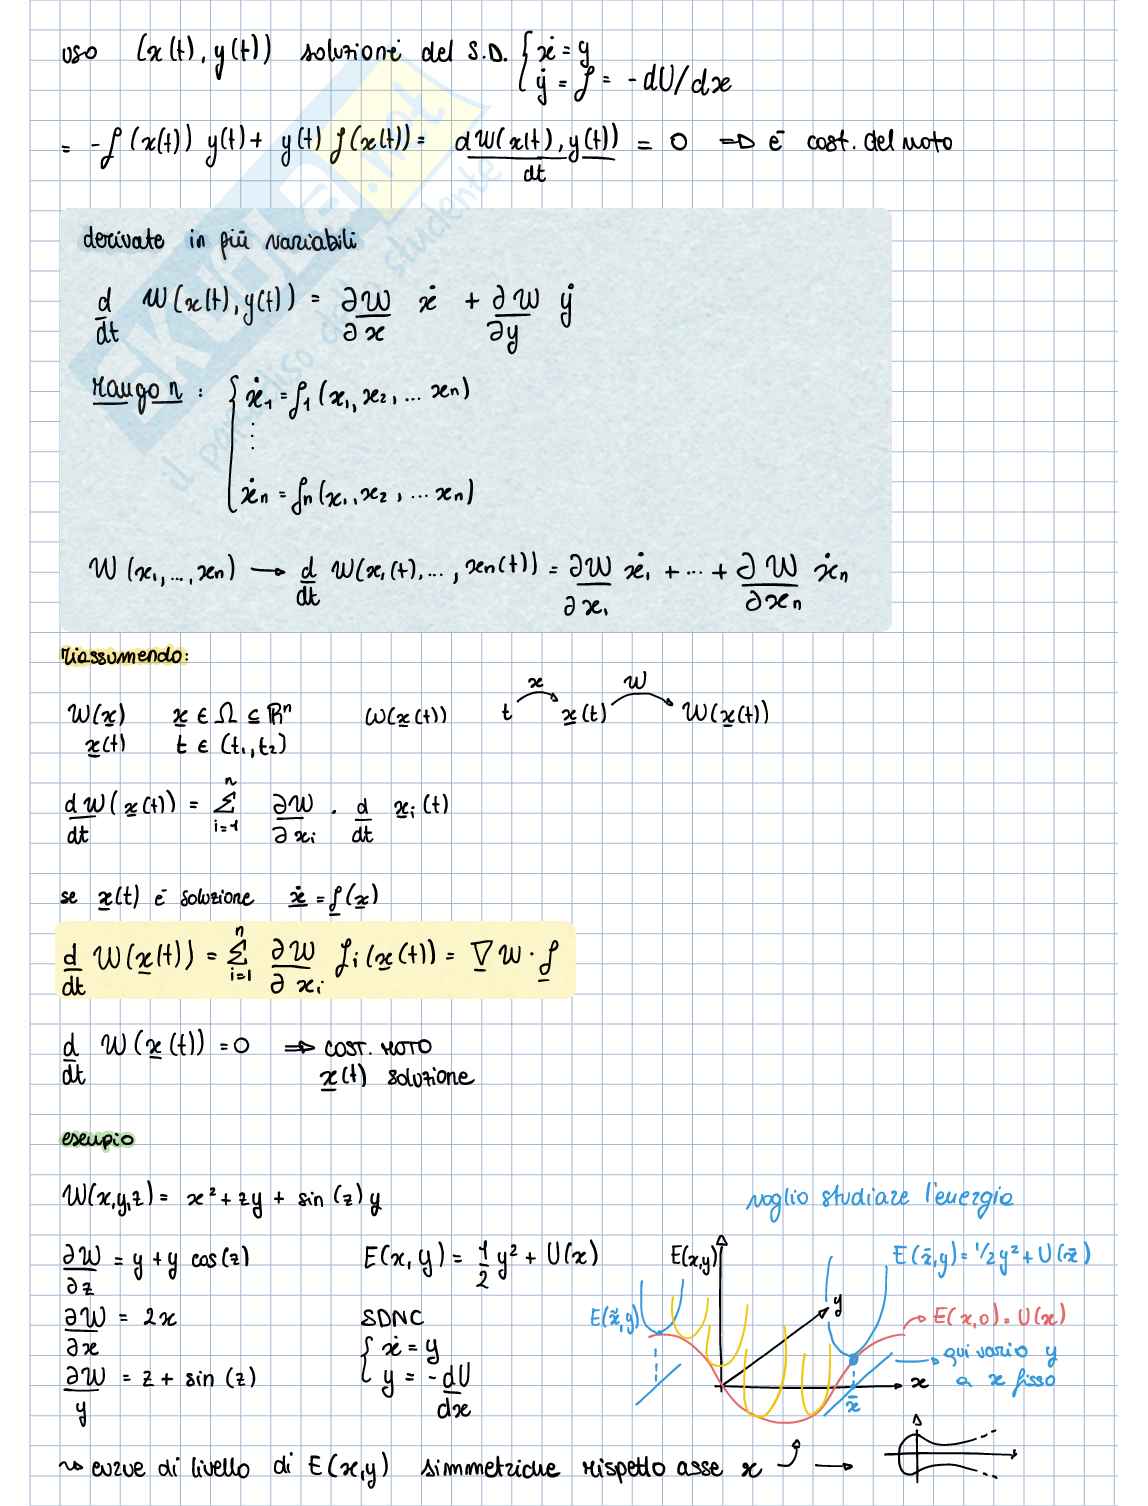 uso (x(t), y(t)) soluzione del S.D. { ẋ = y
ẏ = f = -dU/dx
= -f(x(t)) y(t) + y(t) f(x(t)) = dW(x(t), y(t))/dt = 0 => è cost. del moto
derivate in più variabili
d/dt W(x(t), y(t)) = ∂W/∂x ẋ + ∂W/∂y ẏ
Rango n : { ẋ₁ = f₁(x₁, x₂, ... xn)
⋮
ẋn = fn(x₁, x₂, ... xn)
W(x₁, ..., xn) → d/dt W(x₁(t), ..., xn(t)) = ∂W/∂x₁ ẋ₁ + ... + ∂W/∂xn ẋn
riassumendo:
W(x) x ∈ Ω ⊆ ℝⁿ W(x(t)) t x x(t) W W(x(t))
x(t) t ∈ (t₁, t₂)
dW/dt (x(t)) = Σ i=1 n ∂W/∂xi · d/dt xi(t)
se x(t) è soluzione ẋ = f(x)
d/dt W(x(t)) = Σ i=1 n ∂W/∂xi fi(x(t)) = ∇W · f
d/dt W(x(t)) = 0 => COST. MOTO
x(t) soluzione
esempio
W(x,y,z) = x² + zy + sin(z) y
∂W/∂z = y + y cos(z)
∂W/∂x = 2x
∂W/y = z + sin(z)
E(x, y) = 1/2 y² + U(x)
SDNC
{ ẋ = y
y = -dU/dx
voglio studiare l'energia
E(x,y)
E(x̄,y) = 1/2 y² + U(x̄)
E(x̃,y)
y
E(x,0) = U(x)
qui vario y
a x fisso
x
x̄
~> curve di livello di E(x,y) simmetriche rispetto asse x →